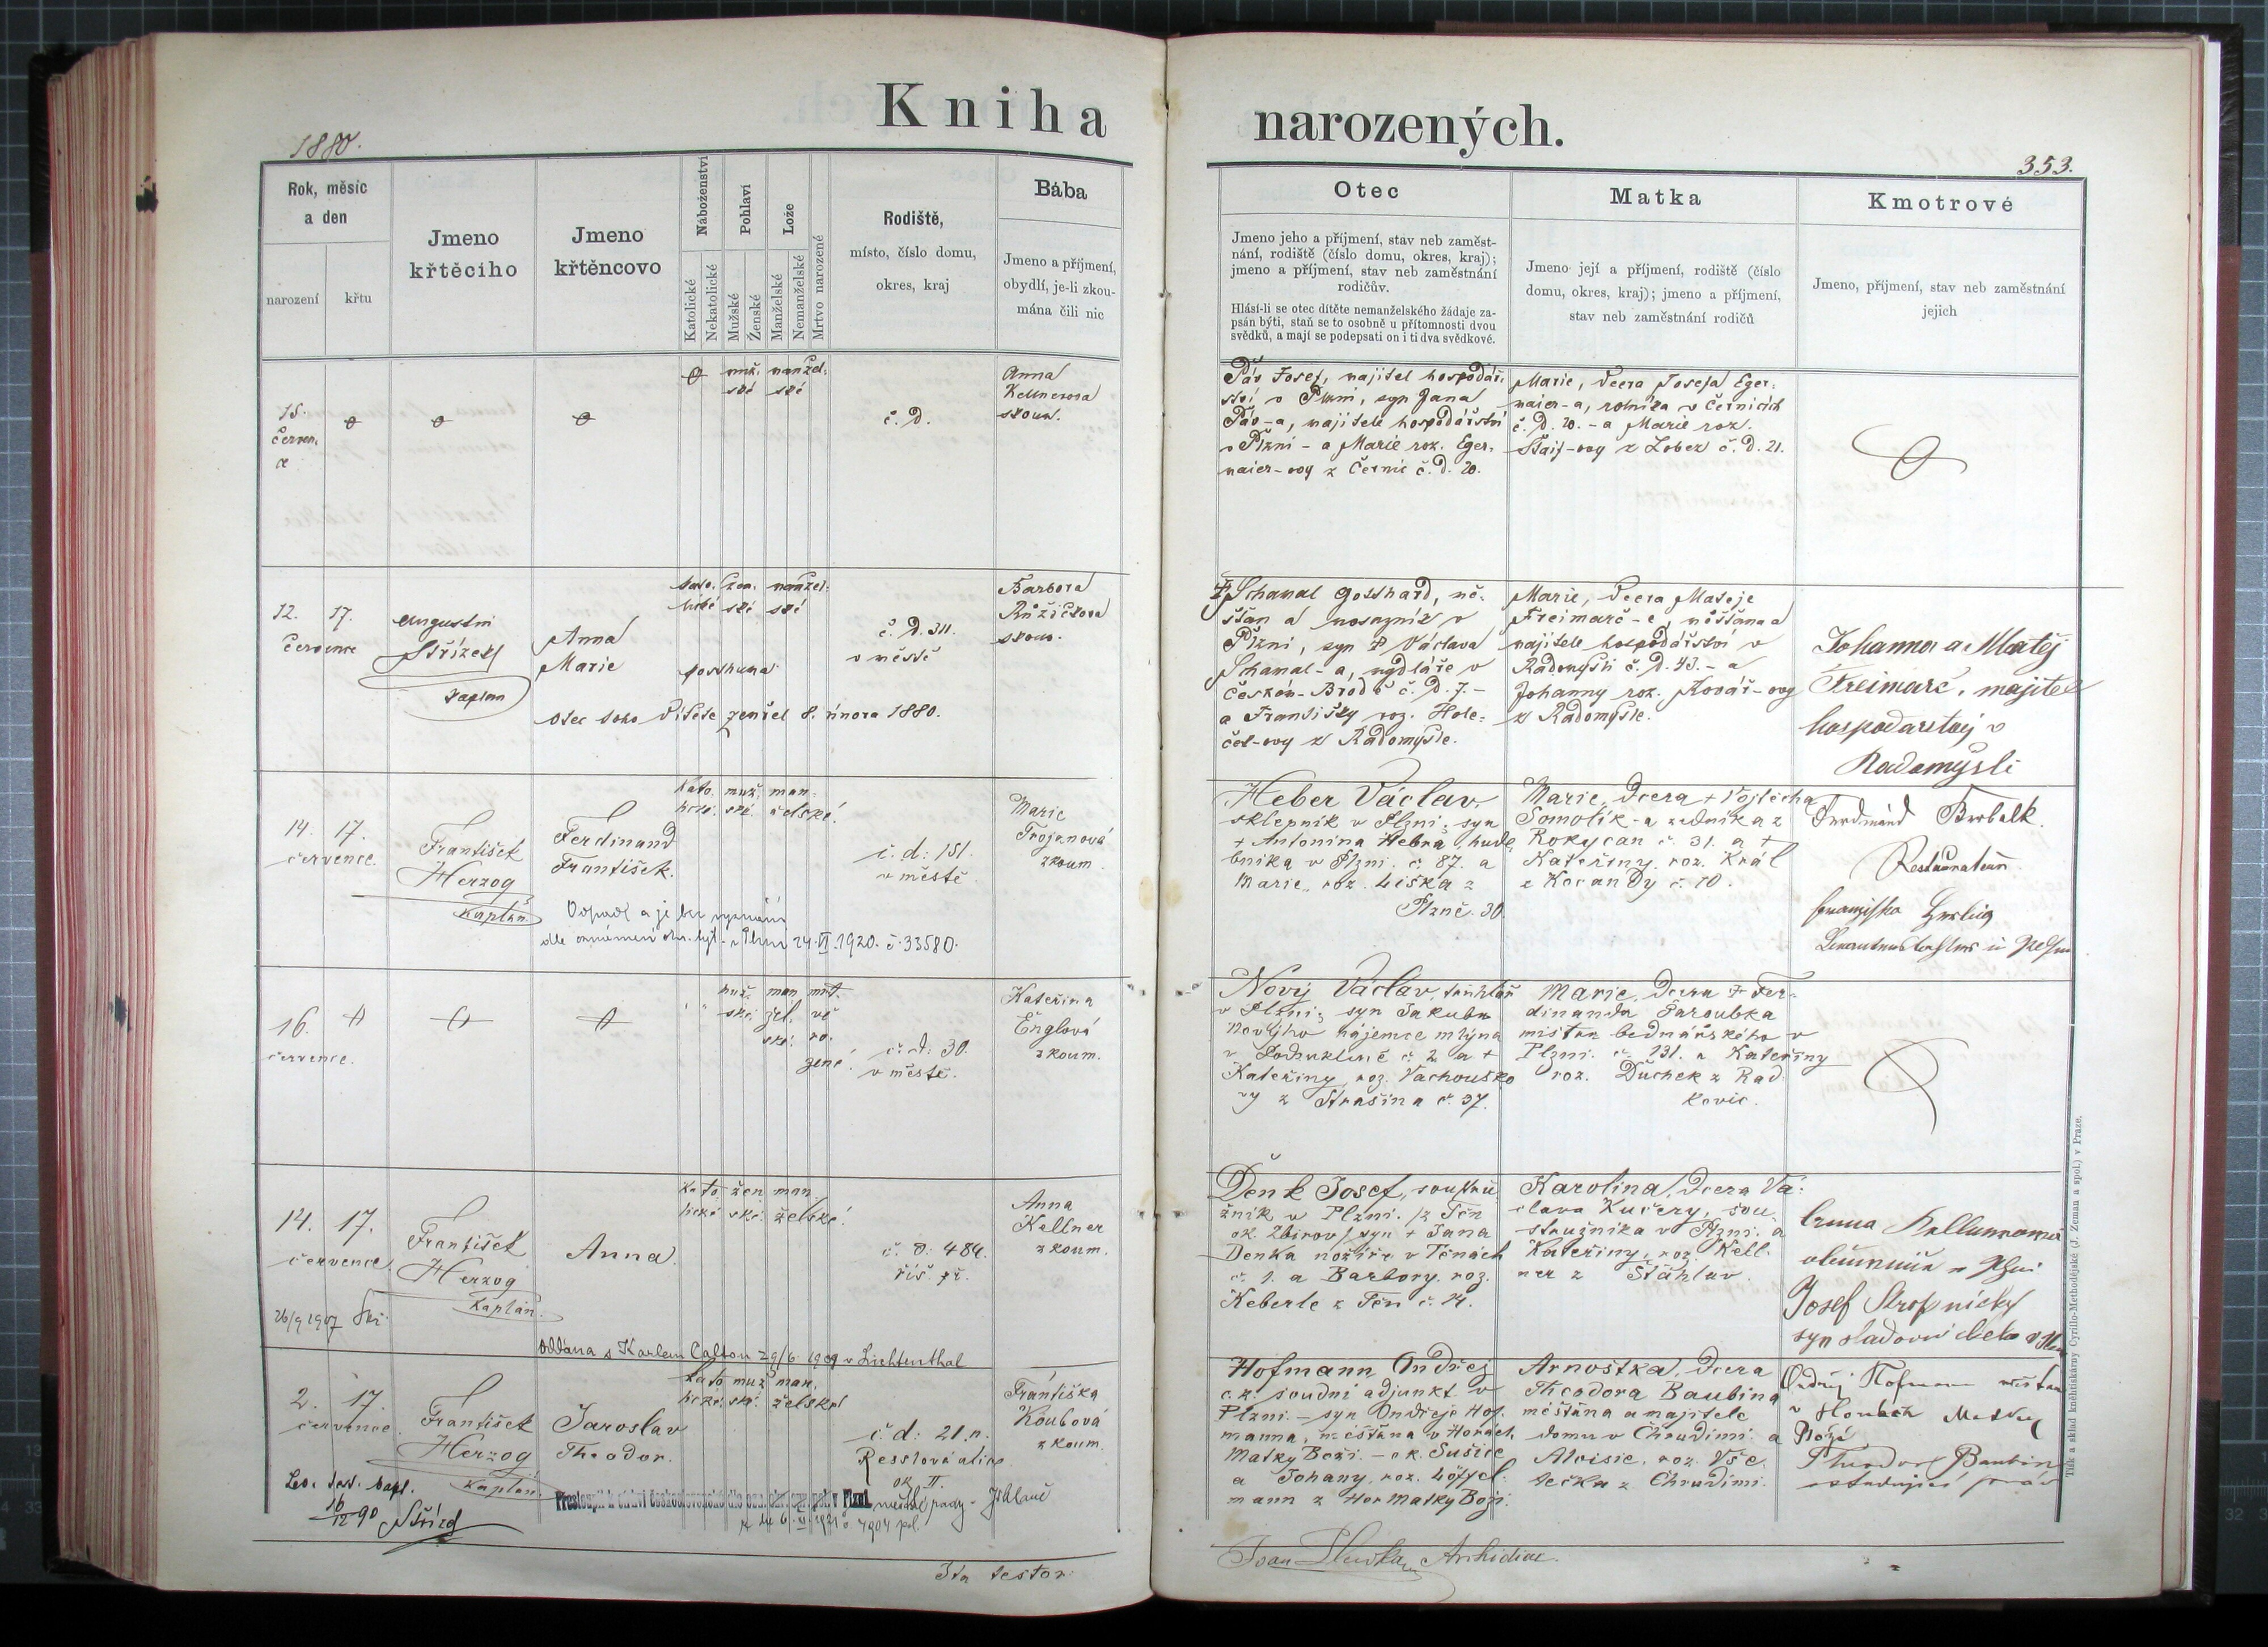 Kniha narozených.
1880.
353.
Rok, měsíc
a den
narození
křtu
Jmeno
křtěcího
Jmeno
křtěncovo
Náboženství
Katolické
Nekatolické
Pohlaví
Mužské
Ženské
Lože
Manželské
Nemanželské
Mrtvo narozené
Rodiště,
místo, číslo domu,
okres, kraj
Bába
Jmeno a příjmení,
obydlí, je-li zkou-
mána čili nic
Otec
Jmeno jeho a příjmení, stav neb zaměst-
nání, rodiště (číslo domu, okres, kraj);
jmeno a příjmení, stav neb zaměstnání
rodičův.
Hlásí-li se otec dítěte nemanželského žádaje za-
psán býti, staň se to osobně u přítomnosti dvou
svědků, a mají se podepsati on i ti dva svědkové.
Matka
Jmeno její a příjmení, rodiště (číslo
domu, okres, kraj); jmeno a příjmení,
stav neb zaměstnání rodičů
Kmotrové
Jmeno, příjmení, stav neb zaměstnání
jejich
15.
červen.
ce
muž. manžel.
ské ské
č. d.
Anna
Kellnerova
zkoum.
Páv Josef, majitel hospodář.
ství v Plzni, syn Jana
Páv-a, majitele hospodářství
v Plzni - a Marie roz. Eger.
maier-ovy z Černic č. d. 20.
Marie, dcera Josefa Eger.
maier-a, rolníka v Černicích
č. d. 20. - a Marie roz.
Štaif-ovy z Lobez č. d. 21.
12. 17.
července
Augustin
Střízek
kaplan
Anna
Marie
kato. žen. manžel.
lické ské ské
posthuma
otec toho dítěte zemřel 8. února 1880.
č. d. 311.
v městě
Barbora
Růžičkova
zkoum.
Schamal Gotthard, mě-
šťan a v
Plzni, syn Václava
Schamal-a, mydláře v
Českém-Brodě č. d. 7. -
a Františky roz. Hole-
ček-ovy z Radomyšle.
Marie, dcera Matěje
Freimarč-e, měšťana a
majitele hospodářství v
Radomyšli č. d. 43. - a
Johanny roz. Kovář-ovy
z Radomyšle.
Johanna a Matěj
Freimarč, majitel
hospodarstvj v
Radomyšli
14. 17.
července.
František
Herzog
Kaplán
Ferdinand
František.
kato. muž. man-
lické. ské. želské.
Odpadl a je bez vyznání
dle oznámení v Plzni 24. VI. 1920. č. 33580.
č. d: 151.
v městě
Marie
Trojanová
zkoum.
Heber Václav,
sklepník v Plzni; syn
+ Antonína Hebra, hude-
bníka v Plzni. č. 87. a
Marie, roz. Liška z
Plzně. 30
Marie, dcera + Vojtěcha
Somolík-a zedníka z
Rokycan č. 31. a +
Kateřiny, roz. Král
z Kocandy č. 10.
Ferdinand
Restaurateur
Franziska
16.
července.
muž. man mrt.
ské. žel. vě
ské. ro.
zené.
č: d: 30.
v městě.
Kateřina
Englová
zkoum.
Nový Václav, truhlář
v Plzni; syn Jakuba
Novýho nájemce mlýna
v č. 2. a +
Kateřiny, roz. Vachouško
vy z Strašina č. 37.
Marie, dcera + Fer-
dinanda Paroubka
mistra bednářského v
Plzni. č. 131. a Kateřiny
roz. Duchek z Rad
kovic.
14. 17.
července.
26/9 1907
František
Herzog
Kaplán.
Anna.
kato. žen. man
lické. ské. želské.
č. d: 484.
říš. př.
Anna
Kellner
zkoum.
oddána s Karlem Calton 29/6 1909 v Lichtenthal
Denk Josef, soustru
žník v Plzni. /z Těn
ok. Zbirov/ syn + Jana
Denka nožíře v Těnách
č. 1. a Barbory. roz.
Keberle z Těn č. 14.
Karolina, dcera Vá-
clava Kučery, sou-
stružníka v Plzni. a
Kateřiny, roz. Kell-
ner z Štáhlav.
Anna Kellnerova
v Plzni
Josef Stropnický
syn
2. 17.
července
Lev. test. bapt.
16/12 90 Střízek
František
Herzog
Kaplán.
Jaroslav
Theodor.
kato. muž. man.
lické. ské. želské
č: d: 21. n.
Resslová ulice
Františka
Koubová
zkoum.
Hofmann Ondřej
c. k. soudní adjunkt v
Plzni. - syn Ondřeje Hof.
manna, měšťana v Horách
Matky Boží. - ok. Sušice
a Johany, roz. Löffel-
mann z Hor Matky Boží.
Arnoštka, dcera
Theodora Baubina
měšťana a majitele
domu v Chrudimi. a
Aloisie, roz. Vše
tečka z Chrudimi.
Ondřej Hofmann měšťan
v Horách Matky
Boží
Theodor Baubin
studující práv
Ita testor
Archidiac.
Tisk a sklad knihtiskárny Cyrillo-Methodějské (J. Zeman a spol.) v Praze.